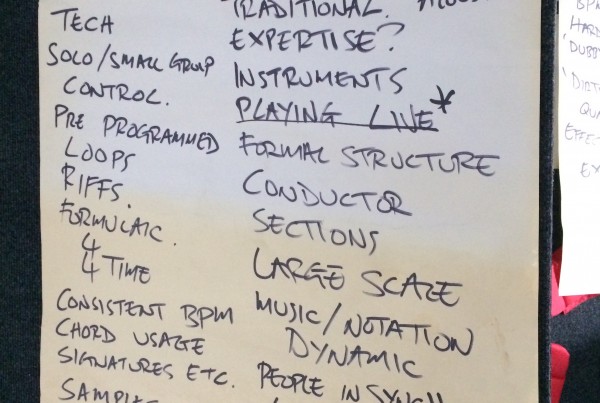 TECH
SOLO/SMALL GROUP
CONTROL.
PRE PROGRAMMED
LOOPS
RIFFS.
FORMULAIC.
4
4 TIME
CONSISTENT BPM
CHORD USAGE
SIGNATURES ETC.
SAMPLES
TRADITIONAL.
EXPERTISE?
INSTRUMENTS
PLAYING LIVE*
FORMAL STRUCTURE
CONDUCTOR
SECTIONS
LARGE SCALE
MUSIC/NOTATION
DYNAMIC
PEOPLE IN SYNC!!
BPM